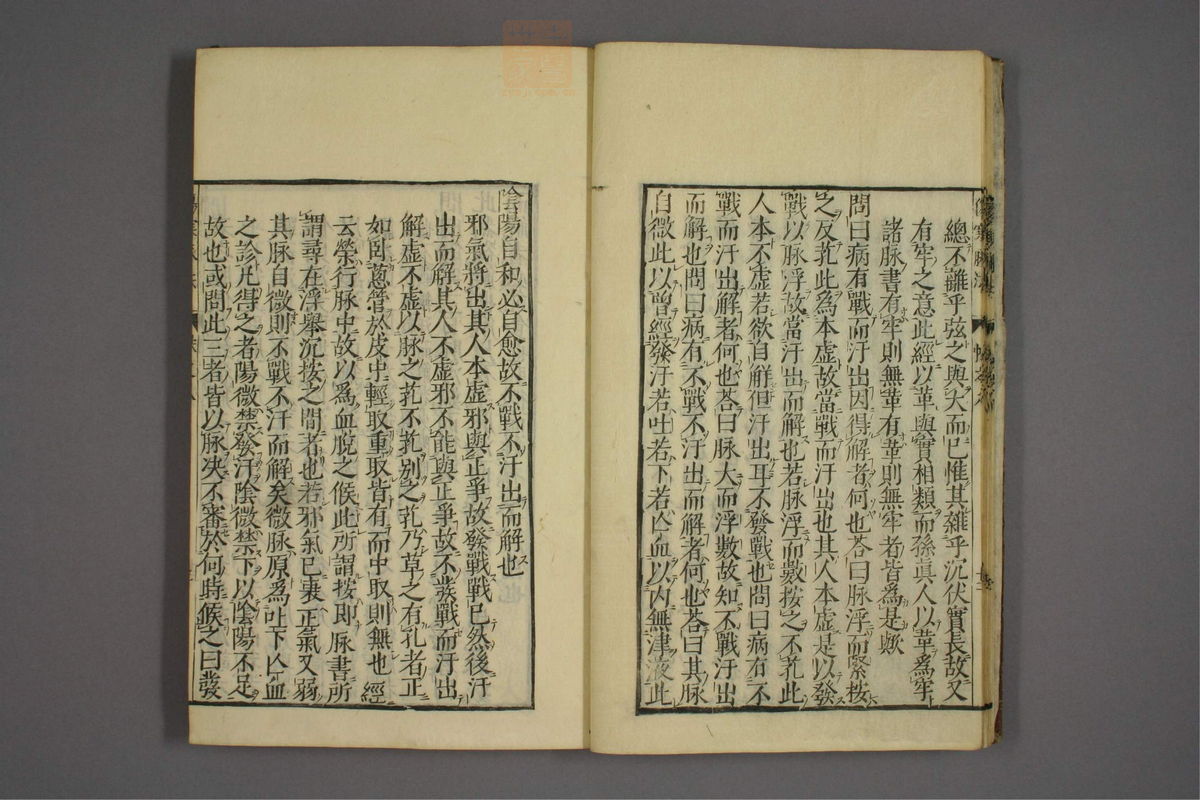 總不離乎弦之與大而已惟其雜乎沉伏實長故又
有牢之意此經以革與實相類而孫真人以革爲牢
諸脉書有牢則無革有革則無牢者皆爲是歟
問曰病有戰而汗出因得解者何也荅曰脉浮而緊按
之反芤此爲本虛故當戰而汗出也其人本虛是以發
戰以脉浮故當汗出而解也若脉浮而數按之不芤此
人本不虛若欲自解但汗出耳不發戰也問曰病有不
戰而汗出解者何也荅曰脉大而浮數故知不戰汗出
而解也問曰病有不戰不汗出而解者何也荅曰其脉
自微此以曾經發汗若吐若下若亾血以内無津液此
陰陽自和必自愈故不戰不汗出而解也
邪氣將出其人本虛邪與正爭故發戰戰已然後汗
出而解其人不虛邪不能與正爭故不發戰而汗出
解虛不虛以脉之芤不芤別之芤乃草之有孔者正
如卧蔥管於皮中輕取重取皆有而中取則無也經
云榮行脉中故以爲血脫之候此所謂按即脉書所
謂尋在浮舉沉按之間者也若邪氣已衰正氣又弱
其脉自微則不戰不汗而解矣微脉原爲吐下亾血
之診凡得之者陽微禁發汗陰微禁下以陰陽不足
故也或問此三者皆以脉决不審於何時候之曰發